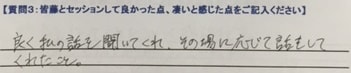 【質問3:皆藤とセッションして良かった点、凄いと感じた点をご記入ください】
良く私の話を聞いてくれ、その場に応じて話をして
くれたこと。